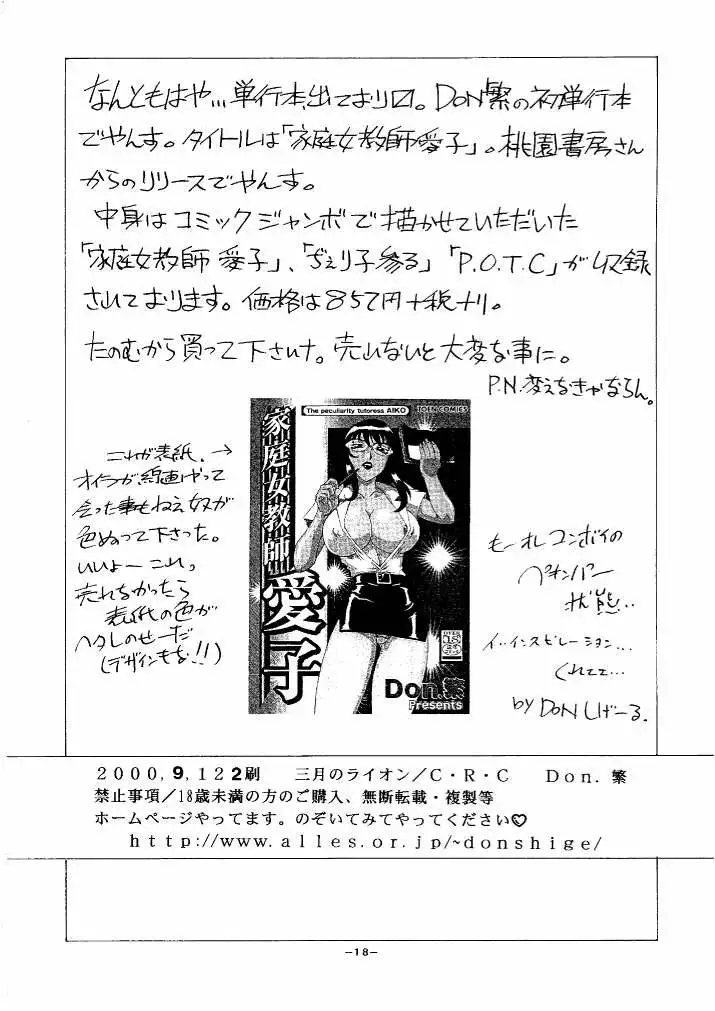 なんともはや…単行本出ております。DON繁の初単行本
でやんす。タイトルは「家庭女教師愛子」。桃園書房さん
からのリリースでやんす。
中身はコミックジャンボで描かせていただいた
「家庭女教師 愛子」、「ぢぇり子参る」「P.O.T.C」が収録
されております。価格は857円+税+り。
たのむから買って下さいナ。売れないと大変な事に。
P.N.変えなきゃならん。
The peculiarity tutoress AIKO
TOEN COMICS
家庭女教師
愛子
Don.繁
Presents
これが表紙。→
オイラが線画やって
会った事もねえ奴が
色ぬって下さった。
いいよー これ。
売れなかったら
表紙の色が
ヘタレのせーだ
(デザインもな!!)
もーれコンボイの
ペナンパー
状態…
イ…インスピレーション…
くれてて…
by DON しげーる.
2000,9,12 2刷 三月のライオン/C・R・C Don. 繁
禁止事項/18歳未満の方のご購入、無断転載・複製等
ホームページやってます。のぞいてみてやってください♡
http://www.alles.or.jp/~donshige/
-18-